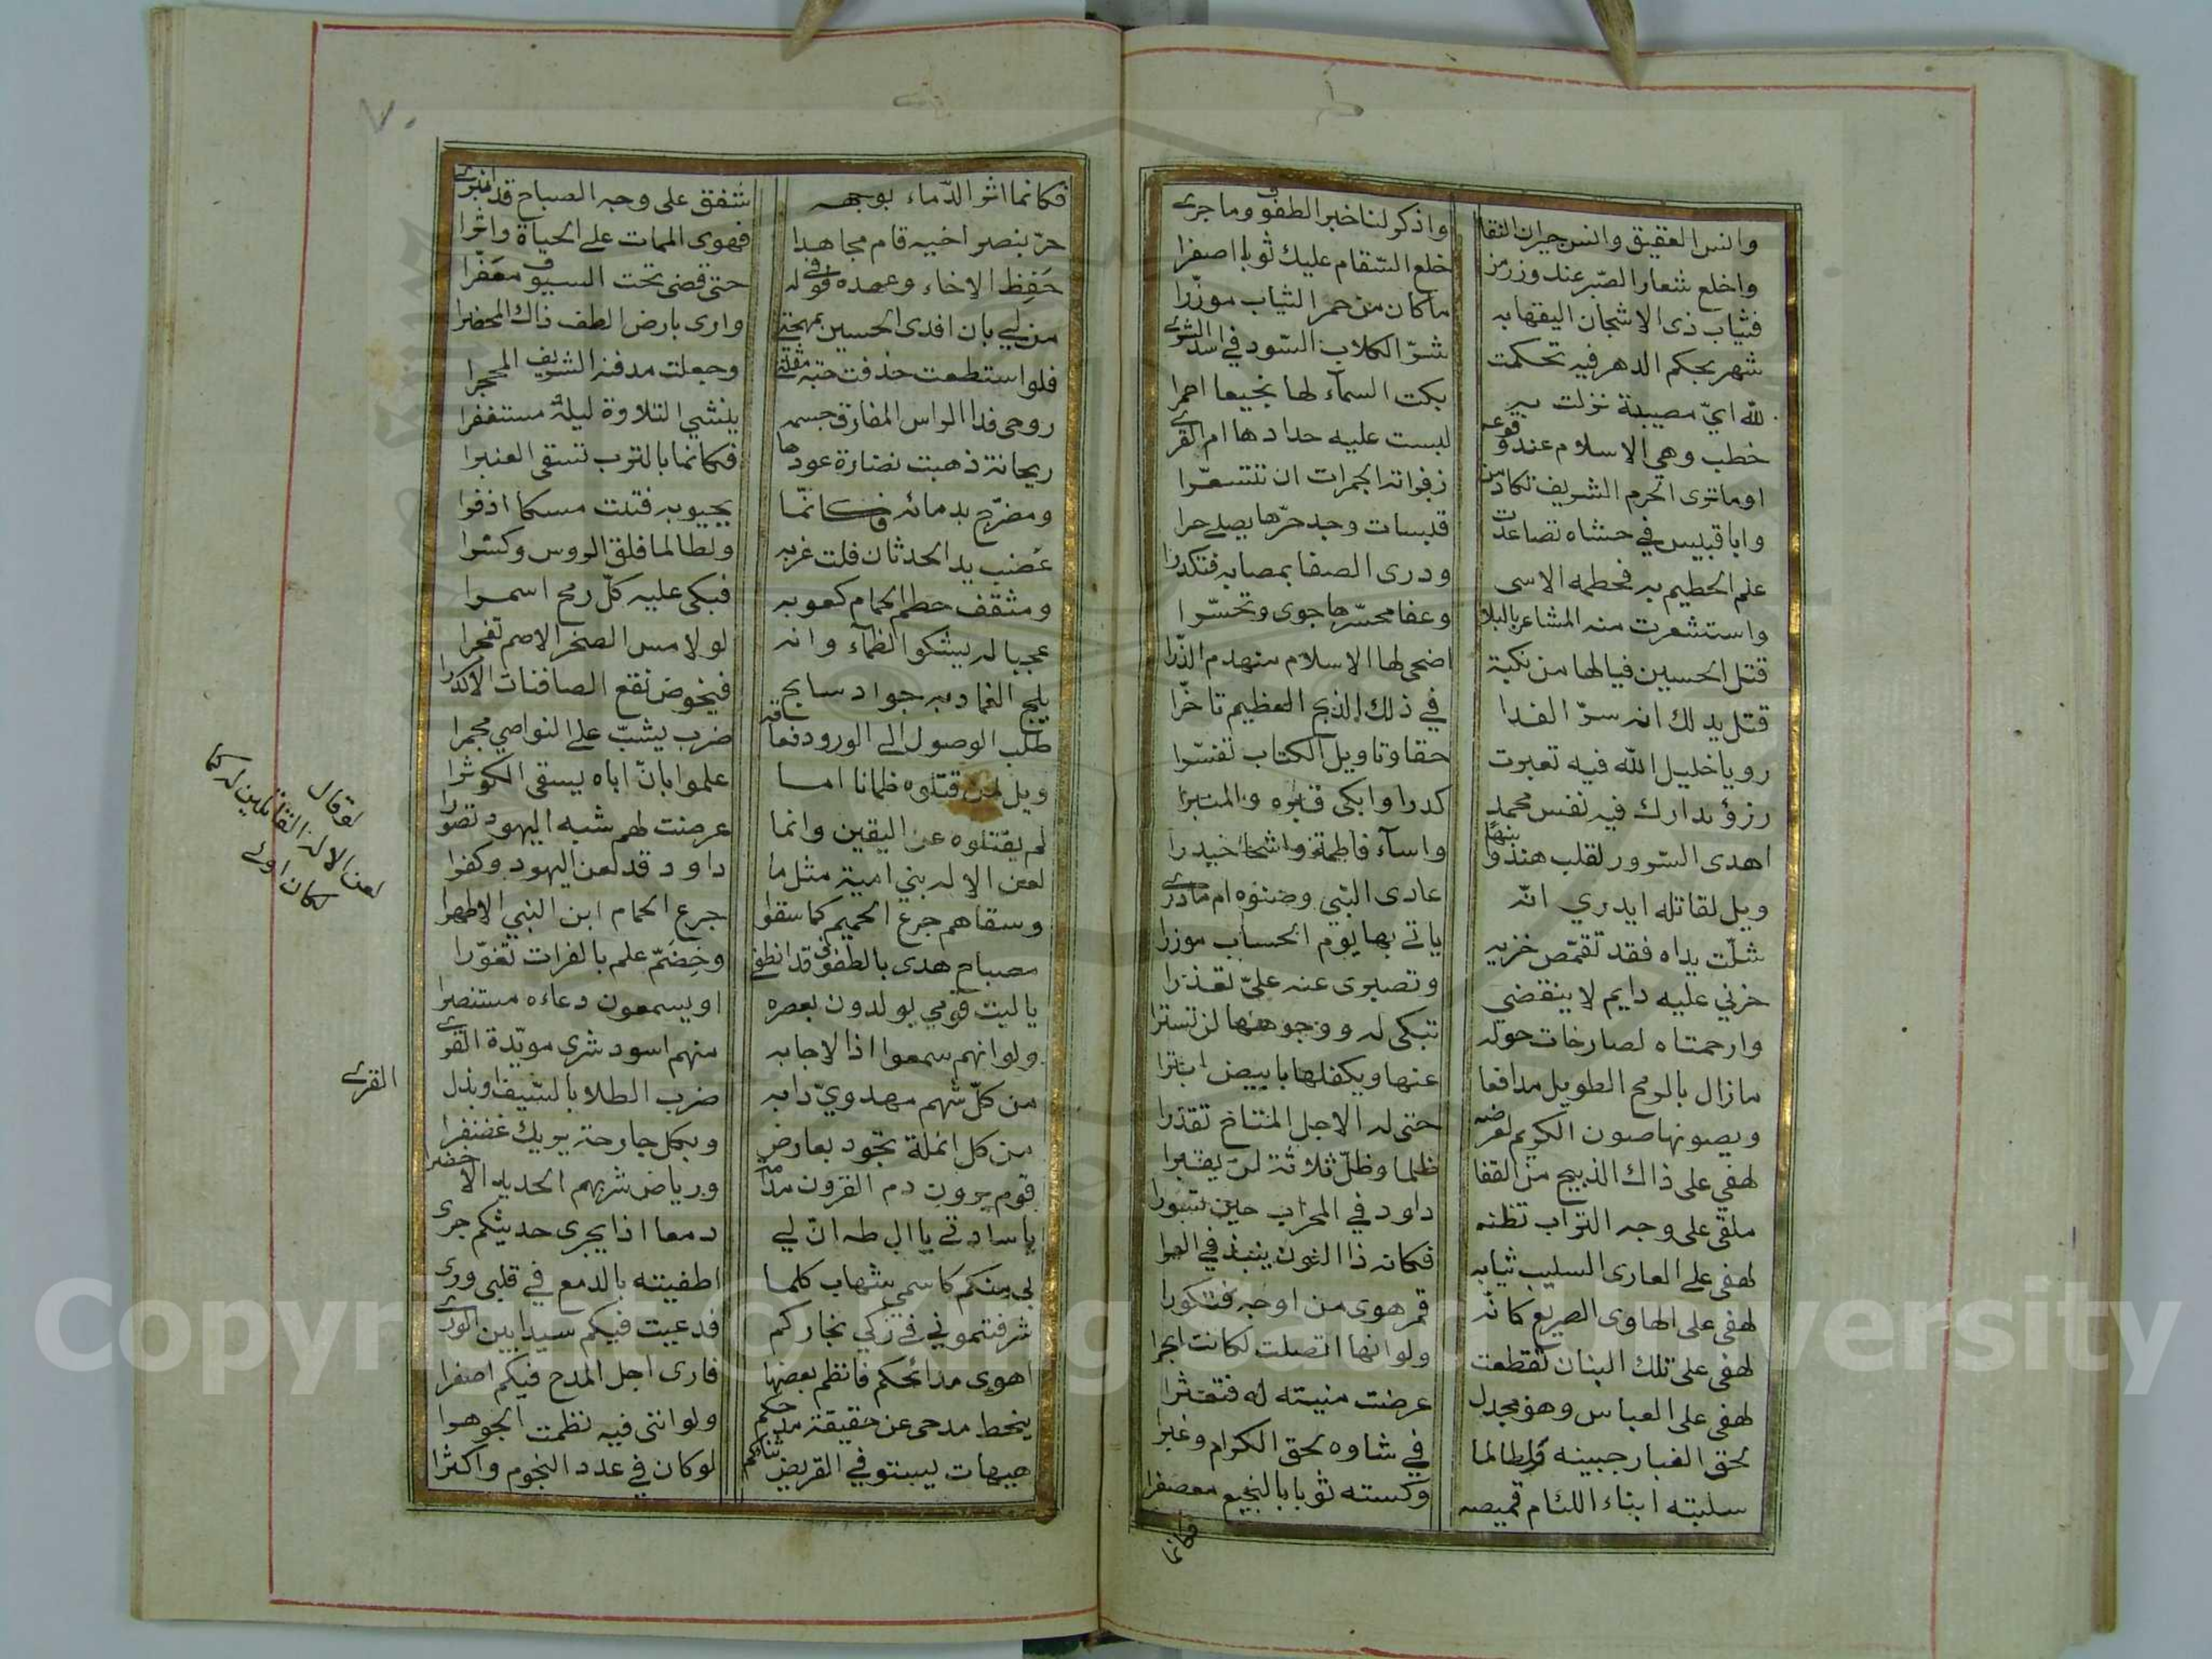 وانس العقيق وانس جيران النقا واذكر لنا خبر الطفوف وما جرى
واخلع شعار الصبر عند وزر من خلع السقام عليك ثوبا اصفرا
فثياب ذى الاشجان اليقها به ماكان من حمر الثياب موزرا
شهر بحكم الدهر فيه تحكمت شرّ الكلاب السّود في اسد الشرى
لله ايّ مصيبة نزلت به بكت السمآء لها نجيعا احمرا
خطب وهى الاسلام عند وقوعه لبست عليه حدادها ام القرى
اوما ترى الحرم الشريف تكاد من زفراته الجمرات ان تتسعّرا
وابا قبيس في حشاه تصاعدت قبسات وجد حرّها يصلى حرا
علم الحطيم به فحطمه الاسى ودرى الصفا بمصابه فتكدرا
واستشعرت منه المشاعر بالبلا وعفا محسّرها جوى وتحسّرا
قتل الحسين فيالها من نكبة اضحى لها الاسلام منهدم الذّرا
قتل يدلك انه سرّ الفدا في ذلك الذبح العظيم تاخّرا
رويا خليل الله فيه تعبرت حقا وتاويل الكتاب تفسّرا
رزؤ تدارك فيه نفس محمد كدرا وابكى قبره والمنبرا
اهدى السّرور لقلب هند وابنها واسآء فاطمة واشجا حيدرا
ويل لقاتله ايدري انّه عادى النبّي وصنوه ام مادرى
شلّت يداه فقد تقمّص خزيه ياتي بها يوم الحساب موزرا
حزني عليه دايم لا ينقضي وتصبرى عنه عليّ تعذرا
وارحمتاه لصارخات حوله تبكى له ووجوهها لن تسترا
مازال بالرمح الطويل مدافعا عنها ويكفلها بابيض ابترا
ويصونها صون الكريم لعرضه حتى له الاجل المتاح تقدرا
لهفي على ذاك الذبيح من القفا ظلما وظلّ ثلاثة لن يقبرا
ملقى على وجه التراب تظنه داود في المحراب حين تسورا
لهفى على العارى السليب ثيابه فكانه ذا النون ينبذ في العرا
لهفى على الهاوى الصريع كانّه قمر هوى من اوجه فتكورا
لهفى على تلك البنان تقطعت ولو انها اتصلت لكانت ابحرا
لهفى على العباس وهو مجدل عرضت منيته له فتعثرا
لحق الغبار جبينه ولطالما في شاوه لحق الكرام وغبرا
سلبته ابناء اللئام قميصه وكسته ثوبا بالنجيع معصفرا
فكانما
٧٠
فكانما اثر الدّماء بوجهه شفق على وجه الصباح قد انبرى
حرّ بنصر اخيه قام مجاهدا فهوى الممات على الحياة واثرا
حَفِظ الاخاء وعهده فوفى له حتى قضى تحت السيوف معفّرا
من لي بان افدى الحسين بمهجتى وارى بارض الطف ذاك المحضرا
فلو استطعت قذفت حبة مقلتى وجعلت مدفنه الشريف المحجرا
روحى فدا الراس المفارق جسمه ينشي التلاوة ليله مستغفرا
ريحانة ذهبت نضارة عودها فكانما بالترب تسقى العنبرا
ومضرّج بدمائه فكانّما بجيوبه فتت مسكا اذفرا
عضب يد الحدثان فلت غربه ولطالما فلق الروس وكسّرا
ومثقف حطم الحمام كعوبه فبكى عليه كلّ رمح اسمرا
عجبا له يشكو الظمآء وانه لو لامس الصخر الاصم تفجرا
يلج الغمار به جواد سابح فيخوض نقع الصافنات الاكدرا
طلب الوصول الى الورود فعاقه ضرب يشبّ على النواصي مجمرا
ويل لمن قتلوه ظمانا اما علموا بانّ اباه يسقى الكوثرا
لم يقتلوه عن اليقين وانما عرضت لهم شبه اليهود تصورا
لعن الاله بني امية مثل ما داود قد لعن اليهود وكفرا
وسقاهم جرع الحميم كما سقوا جرع الحمام ابن النبي الاطهرا
مصباح هدى بالطفوف قد انطفى وخِضَمّ علم بالفرات تغوّرا
ياليت قومي يولدون بعصره او يسمعون دعاءه مستنصرا
ولو انهم سمعوا اذا لاجابه منهم اسود شرى مويّدة القرى
من كلّ شهم مهدويّ دابه ضرب الطلا بالسّيف او بذل
القرى
من كل انملة تجود بعارض وبكل جارحة يريك غضنفرا
قوم يرون دم القرون مدامة ورياض شربهم الحديد الاخضرا
ياسادتي يا ال طه انّ لي دمعا اذا يجرى حديثكم جرى
بي منكم كاسمي شهاب كلما اطفيته بالدمع في قلبى ورى
شرفتموني في زكي نجاركم فدعيت فيكم سيدا بين الورى
اهوى مدائحكم فانظم بعضها فارى اجل المدح فيكم اصغرا
ينحط مدحى عن حقيقة مدحكم ولو اننى فيه نظمت الجوهرا
هيهات يستوفي القريض ثنائكم لو كان في عدد النجوم واكثرا
لو قال
لعن الاله القاتلين له كما
لكان اولى
Copyright © King Saud University